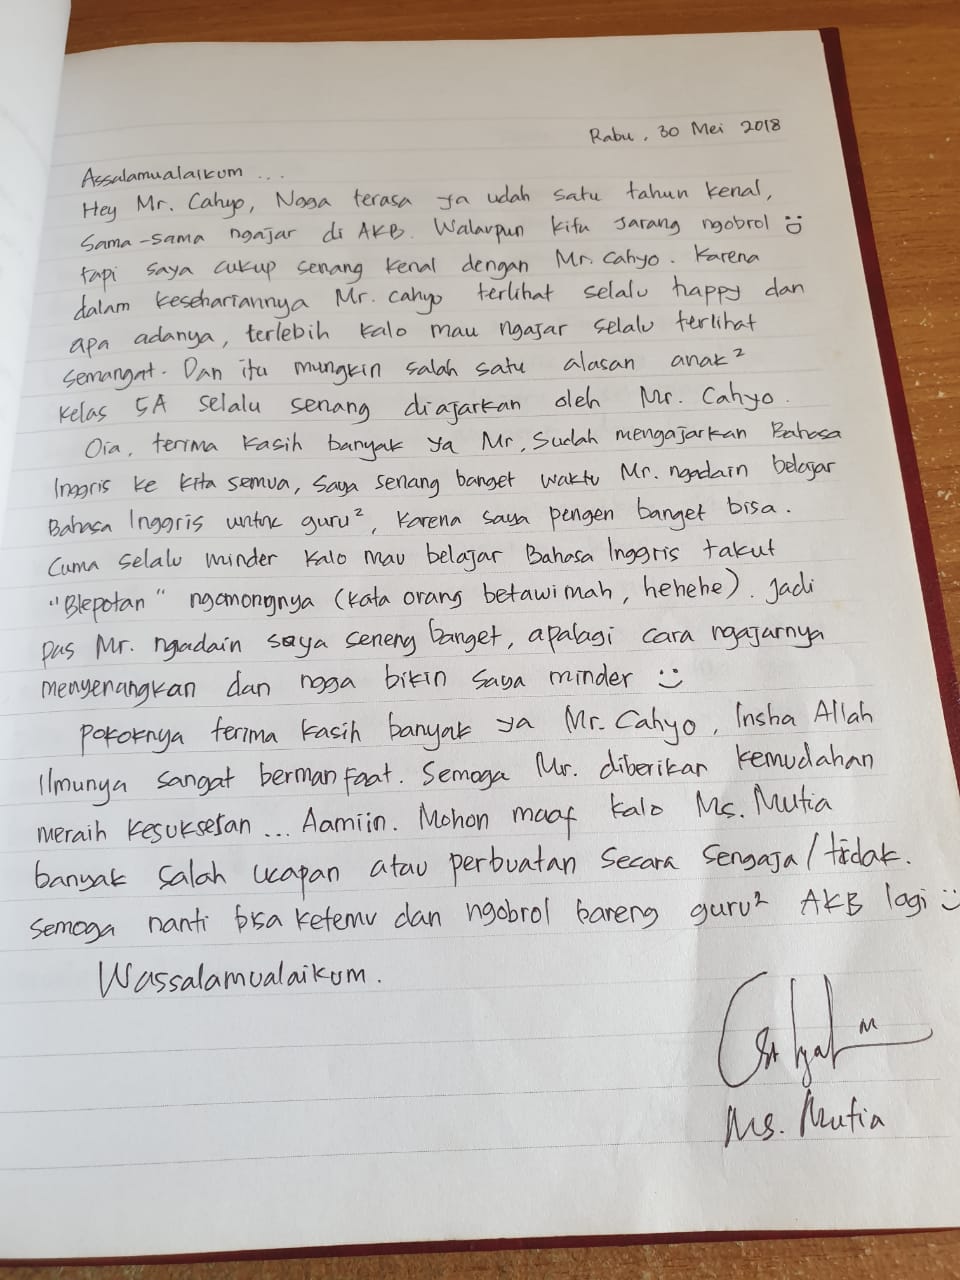 Rabu, 30 Mei 2018
Assalamualaikum ...
Hey Mr. Cahyo, Ngga terasa ya udah satu tahun kenal,
sama-sama ngajar di AKB. Walaupun kita jarang ngobrol
tapi saya cukup senang kenal dengan Mr. Cahyo. Karena
dalam kesehariannya Mr. Cahyo terlihat selalu happy dan
apa adanya, terlebih kalo mau ngajar selalu terlihat
semangat. Dan itu mungkin salah satu alasan anak²
kelas 5A selalu senang diajarkan oleh Mr. Cahyo.
Oia, terima kasih banyak ya Mr, Sudah mengajarkan Bahasa
Inggris ke kita semua, saya senang banget waktu Mr. ngadain belajar
Bahasa Inggris untuk guru², karena saya pengen banget bisa.
Cuma selalu minder kalo mau belajar Bahasa Inggris takut
"Blepotan" ngomongnya (kata orang betawi mah, hehehe). Jadi
pas Mr. ngadain saya seneng banget, apalagi cara ngajarnya
menyenangkan dan ngga bikin saya minder :)
Pokoknya terima kasih banyak ya Mr. Cahyo, Insha Allah
Ilmunya sangat bermanfaat. Semoga Mr. diberikan kemudahan
meraih kesuksesan ... Aamiin. Mohon maaf kalo Ms. Mutia
banyak salah ucapan atau perbuatan secara sengaja/tidak.
Semoga nanti bisa ketemu dan ngobrol bareng guru² AKB lagi :)
Wassalamualaikum.
Ms. Mutia